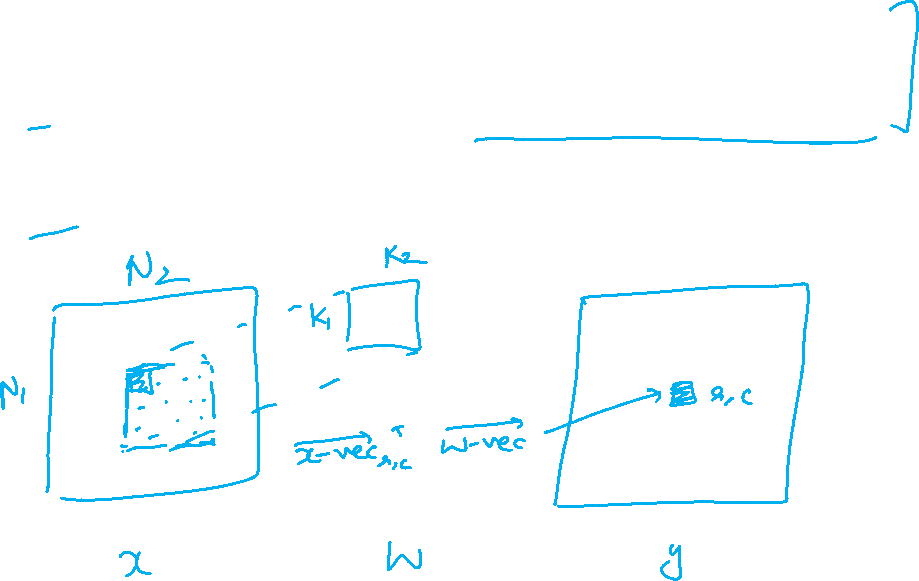 N₂
K₂
N₁
K₁
x-vec r,c ᵀ w-vec
r,c
x
W
y